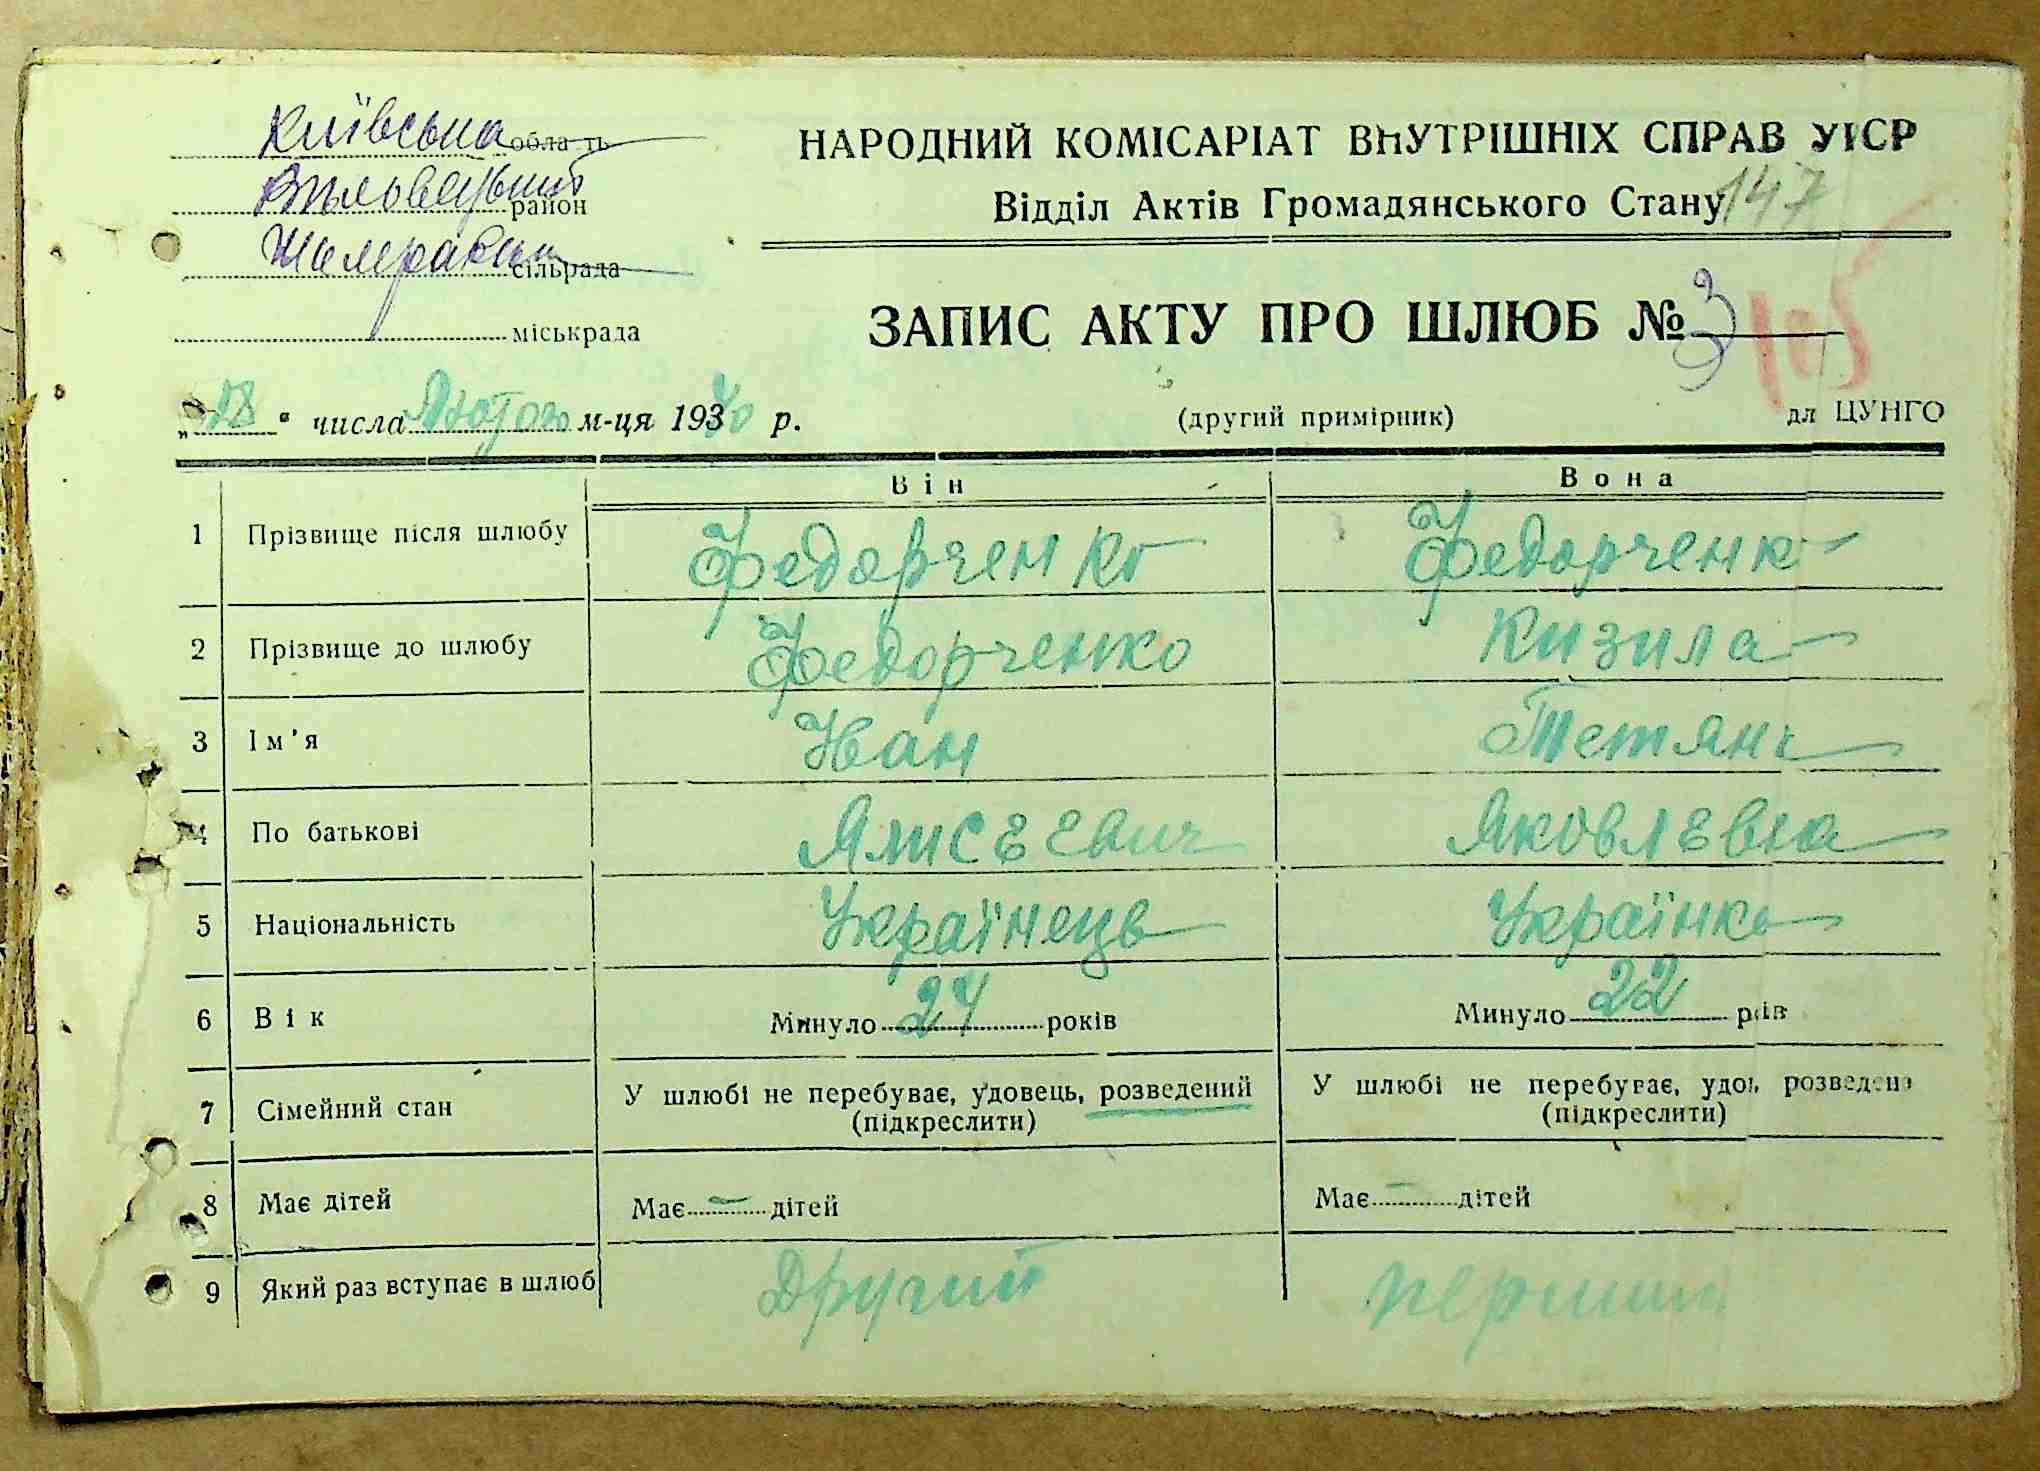 Київська область
район
сільрада
міськрада
НАРОДНИЙ КОМІСАРІАТ ВНУТРІШНІХ СПРАВ УРСР
Відділ Актів Громадянського Стану 147
ЗАПИС АКТУ ПРО ШЛЮБ № 3 105
„28“ числа Лютого м-ця 1940 р.
(другий примірник) для ЦУНГО
Він Вона
1 Прізвище після шлюбу Федорченко Федорченко
2 Прізвище до шлюбу Федорченко Кизила
3 Ім'я Іван Тетяна
4 По батькові Алисеевич Яковлевна
5 Національність Українець Українка
6 Вік Минуло 24 років Минуло 22 років
7 Сімейний стан У шлюбі не перебуває, удовець, розведений (підкреслити) У шлюбі не перебуває, удова, розведена (підкреслити)
8 Має дітей Має — дітей Має — дітей
9 Який раз вступає в шлюб Другий перший